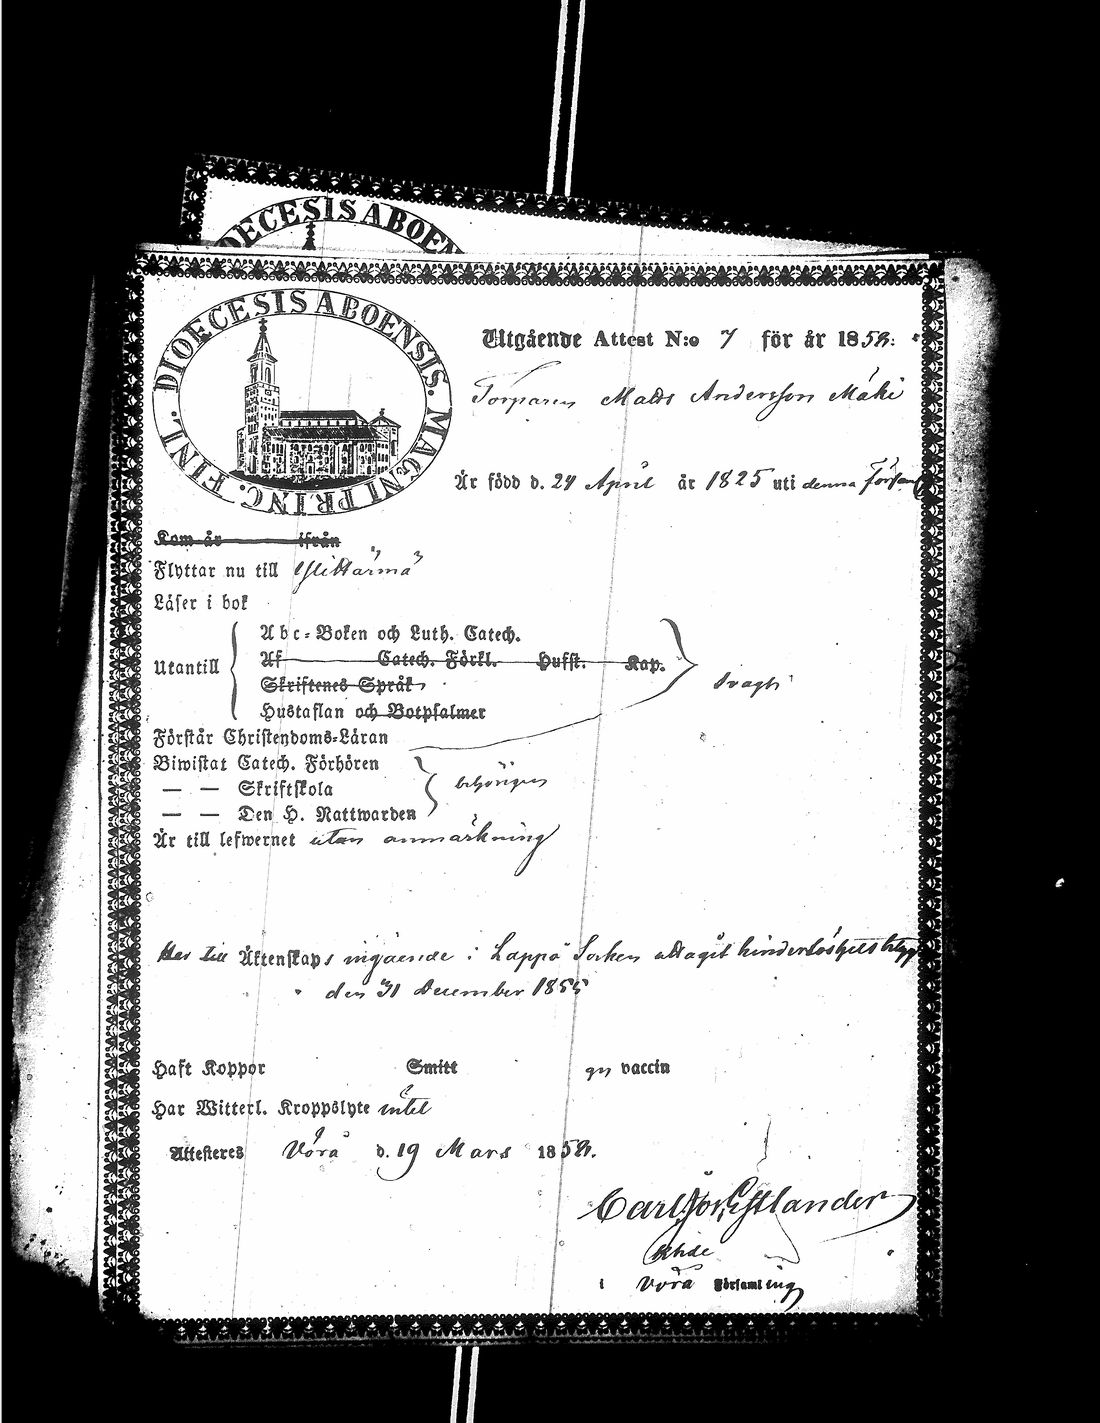 DIOECESIS ABOEN
DIOECESIS ABOENSIS. MAGNI PRINC. FINL.
Utgående Attest N:o 7 för år 185
Torparen Matts Andersson Mäki
Är född d. 24 April år 1825 uti denna Församl
Kom år ifrån
Flyttar nu till Ylihärmä
Läser i bok
Abc-Boken och Luth. Catech.
Utantill Af Catech. Förkl. Husst. Kap.
Skriftenes Språk svagt
Hustaflan och Botpsalmer
Förstår Christendoms-Läran
Biwistat Catech. Förhören
— — Skriftskola behörigen
— — Den H. Nattwarden
Är till lefwernet utan anmärkning
Har till Äktenskaps ingående i Lappo Socken uttagit hinderlöshetsbetyg
den 31 December 1855
Haft Koppor Smitt gn vaccin
Har Witterl. Kroppslyte intet
Attesteres Vörå d. 19 Mars 185
Carl Estlander
i Vörå Församling